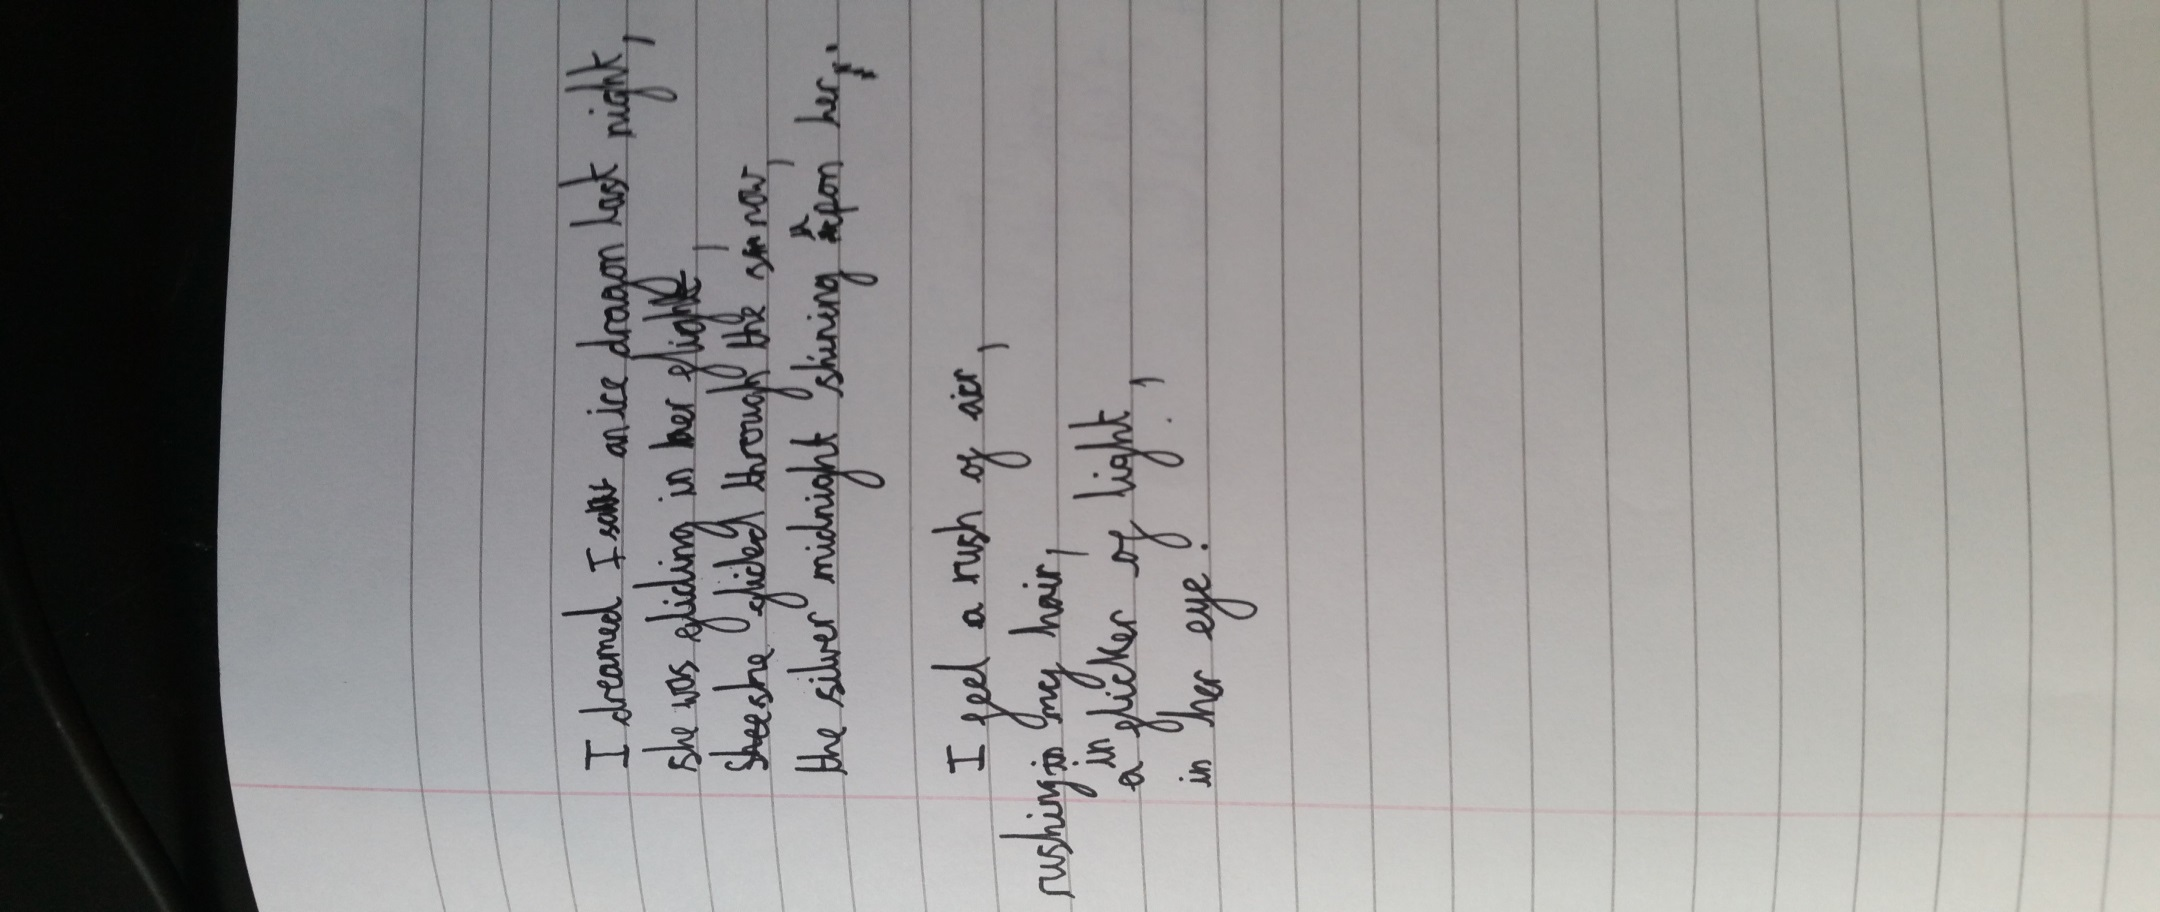 I dreamed I saw an ice dragon last night,
She was gliding in her flight,
she glided through the snow,
the silver midnight shining upon her,
I feel a rush of air,
rushing in my hair,
in
a flicker of light,
in her eye.